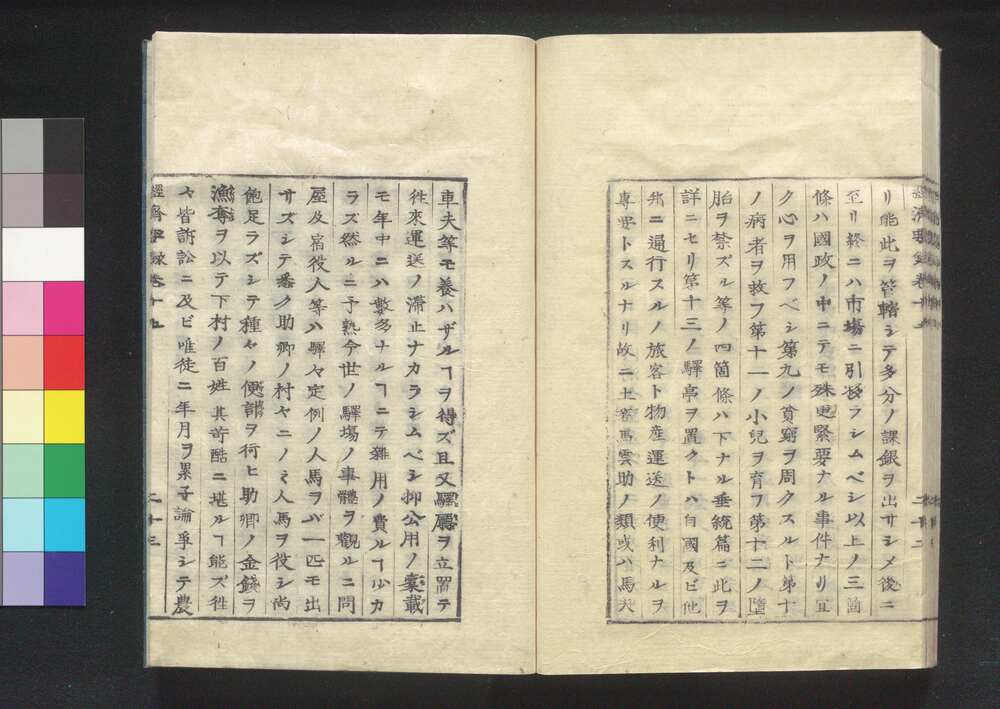 リ能此ヲ管轄シテ多分ノ課銀ヲ出サシメ後ニ
至リ終ニハ市場ニ引移ラシムベシ以上ノ三箇
條ハ國政ノ中ニテモ殊更緊要ナル事件ナリ宜
ク心ヲ用フベシ第九ノ貧窮ヲ周クスルト第十
ノ病者ヲ救フ第十一ノ小兒ヲ育フ第十二ノ墮
胎ヲ禁ズル等ノ四箇條ハ下ナル垂統篇ニ此ヲ
詳ニセリ第十三ノ驛亭ヲ置クトハ自國及ビ他
邦ニ通行スルノ旅客ト物産運送ノ便利ナルヲ
專要トスルナリ故ニ上當馬雲助ノ類或ハ馬夫
二十二
車夫等モ養ハザルヿヲ得ズ且又驛廳ヲ立置テ
徃來運送ノ滯止ナカラシムベシ抑公用ノ嚢載
モ年中ニハ數多ナルヿニテ雜用ノ費ルヿ少カ
ラズ然ルニ予熟今世ノ驛塲ノ事體ヲ觀ルニ問
屋及宿役人等ハ驛々定例ノ人馬ヲバ一匹モ出
サズシテ悉ク助鄕ノ村々ニノミ人馬ヲ役シ尚
飽足ラズシテ種々ノ便計ヲ行ヒ助鄕ノ金錢ヲ
漁奪ヲ以テ下村ノ百姓其苛酷ニ堪ルヿ能ズ徃
々皆訴訟ニ及ビ唯徒ニ年月ヲ累子論爭シテ農
經濟要録卷十五 二十三